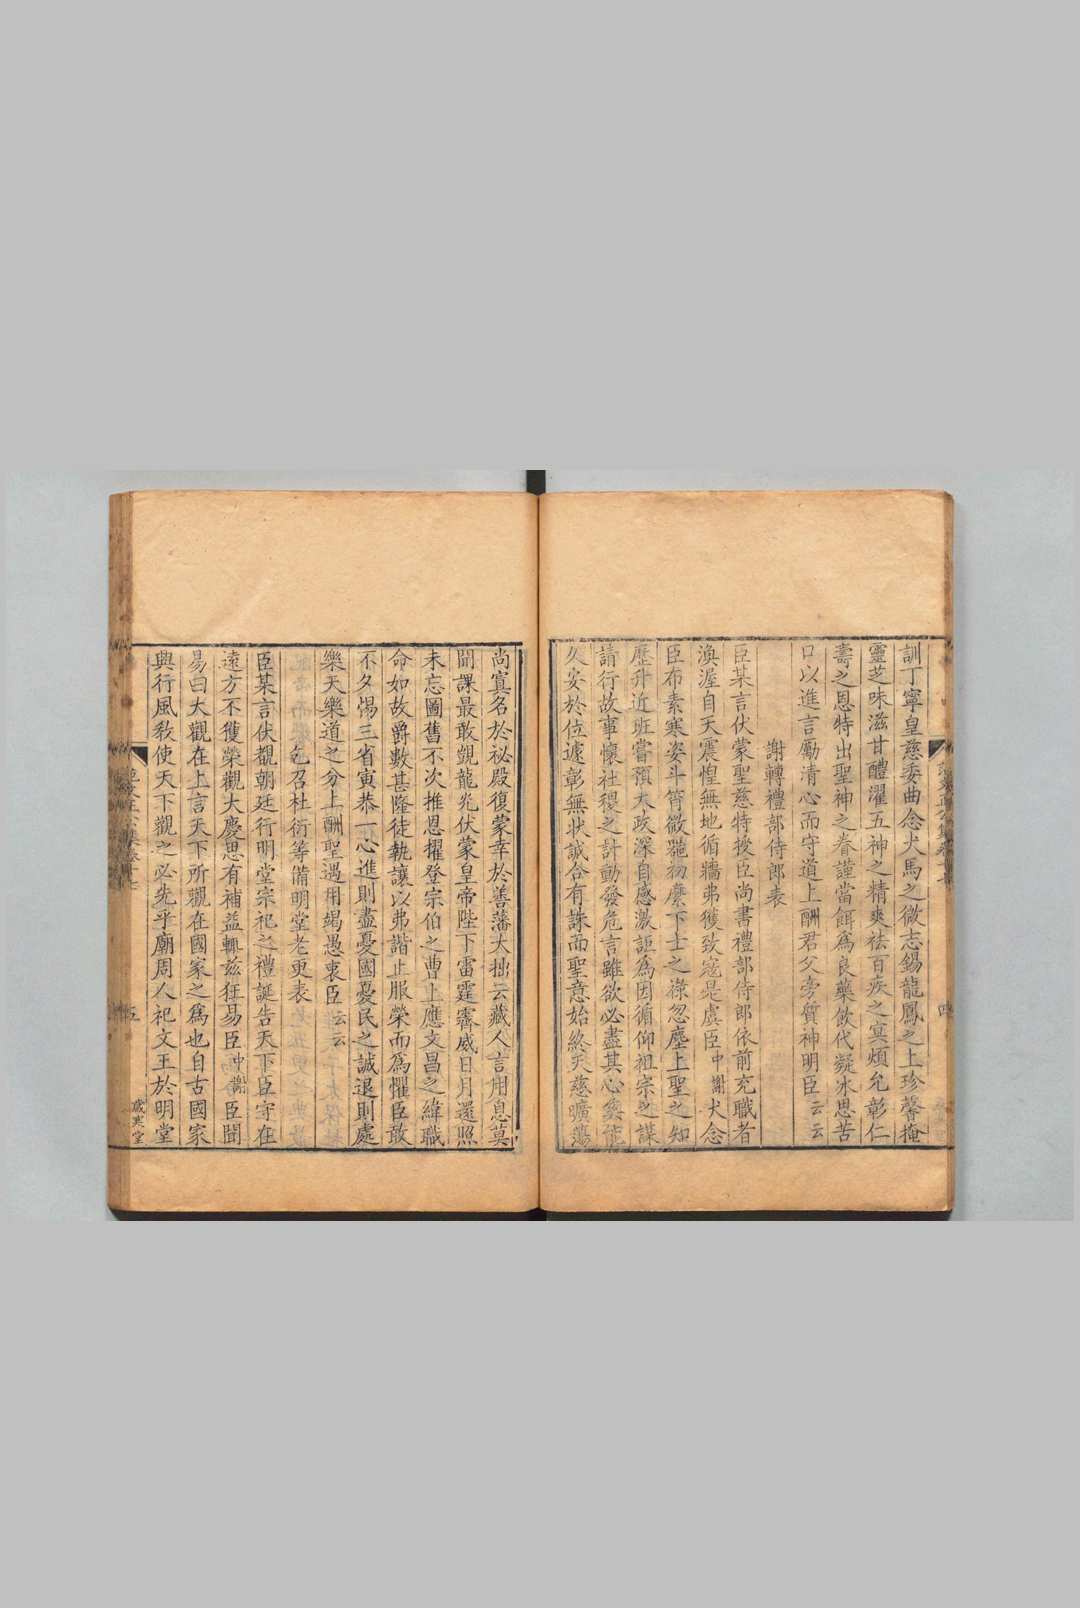 訓丁寧皇慈委曲念犬馬之微志錫龍鳳之上珍馨掩
靈芝味滋甘醴濯五神之精爽祛百疾之冥煩允彰仁
壽之恩特出聖神之眷謹當餌為良藥飲代凝冰思苦
口以進言勵清心而守道上酬君父旁質神明臣云云
謝轉禮部侍郎表
臣某言伏蒙聖慈特授臣尚書禮部侍郎依前充職者
渙渥自天震惶無地循牆弗獲致寇是虞臣中謝犬念
臣布素寒姿斗筲微器物縻下士之祿忽塵上聖之知
歷升近班嘗預大政深自感激詎為因循仰祖宗之謀
請行故事懷社稷之計動發危言雖欲必盡其心奚能
久安於位遽彰無狀誠合有誅而聖意始終天慈曠蕩
尚寘名於祕殿復蒙幸於善藩大拙云藏人言用息莫
聞課最敢覬龍光伏蒙皇帝陛下雷霆霽威日月還照
未忘圖舊不次推恩擢登宗伯之曹上應文昌之緯職
命如故爵數甚隆徒執讓以弗諧止服榮而為懼臣敢
不夕惕三省寅恭一心進則盡憂國憂民之誠退則處
樂天樂道之分上酬聖遇用竭愚衷臣云云
乞召杜衍等備明堂老更表
臣某言伏覩朝廷行明堂宗祀之禮誕告天下臣守在
遠方不獲榮觀大慶思有補益輒茲狂易臣中謝臣聞
易曰大觀在上言天下所觀在國家之為也自古國家
興行風教使天下觀之必先乎廟周人祀文王於明堂
四
五
歲寒堂